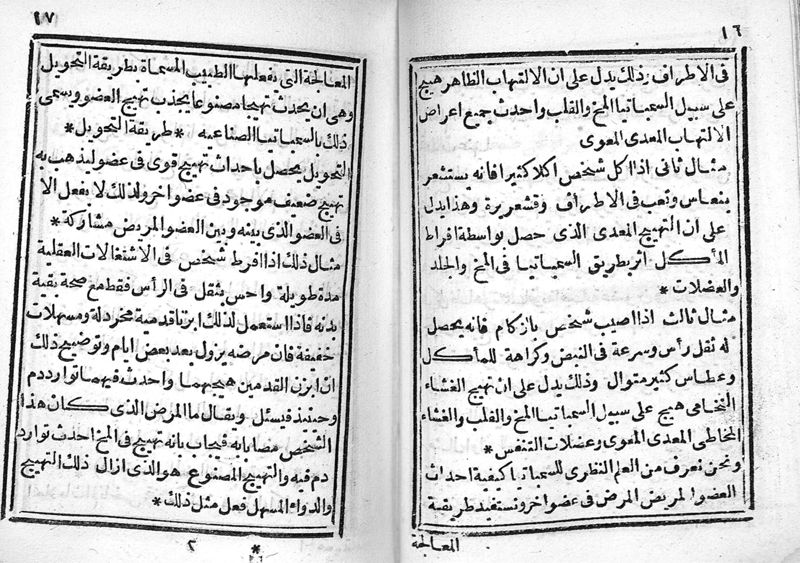 ١٦
فى الاطراف وذلك يدل على ان الالتهاب الظاهر هيج
على سبيل السمباتيا المخ والقلب واحدث جميع اعراض
الالتهاب المعدى المعوى
مثال ثانى اذا اكل شخص اكلا كثيرا فانه يستشعر
بنعاس وتعب فى الاطراف وقشعريرة وهذا يدل
على ان التهيج المعدى الذى حصل بواسطة افراط
المأكل اثر بطريق السمباتيا فى المخ والجلد
والعضلات *
مثال ثالث اذا اصيب شخص بازكام فانه يحصل
له ثقل رأس وسرعة فى النبض وكراهة للمأكل
وعطاس كثير متوال وذلك يدل على ان تهيج الغشاء
النخامى هيج على سبيل السمباتيا المخ والقلب والغشاء
المخاطى المعدى المعوى وعضلات التنفس *
ونحن نعرف من العلم النظرى للسمباتيا كيفية احداث
العضو المريض المرض فى عضو اخر ونستفيد طريقة
المعالجة
١٧
المعالجة التى يفعلها الطبيب المسماة بطريقة التحويل
وهى ان يحدث تهيجا مصنوعا يجذب تهيج العضو ويسمى
ذلك بالسمباتيا الصناعيه * طريقة التحويل *
التحويل يحصل باحداث تهييج قوى فى عضو ليذهب به
تهيج ضعيف موجود فى عضو اخر ولذلك لا يفعل الا
فى العضو الذى بينه وبين العضو المريض مشاركة *
مثال ذلك اذا افرط شخص فى الاشتغالات العقلية
مدة طويلة واحس بثقل فى الرأس فقط مع صحة بقية
بدنه فاذا استعمل لذلك ابزنا قدمية مخردلة ومسهلات
خفيفة فان مرضه يزول بعد بعض ايام وتوضيح ذلك
ان ابزن القدمين هيجهما واحدث فيهما توارد دم
وحينئذ فيسئل ويقال ما المرض الذى كان هذا
الشخص مصابا به فيجاب بانه تهييج فى المخ احدث توارد
دم فيه والتهييج المصنوع هو الذى ازال ذلك التهييج
والدواء المسهل فعل مثل ذلك *
٢